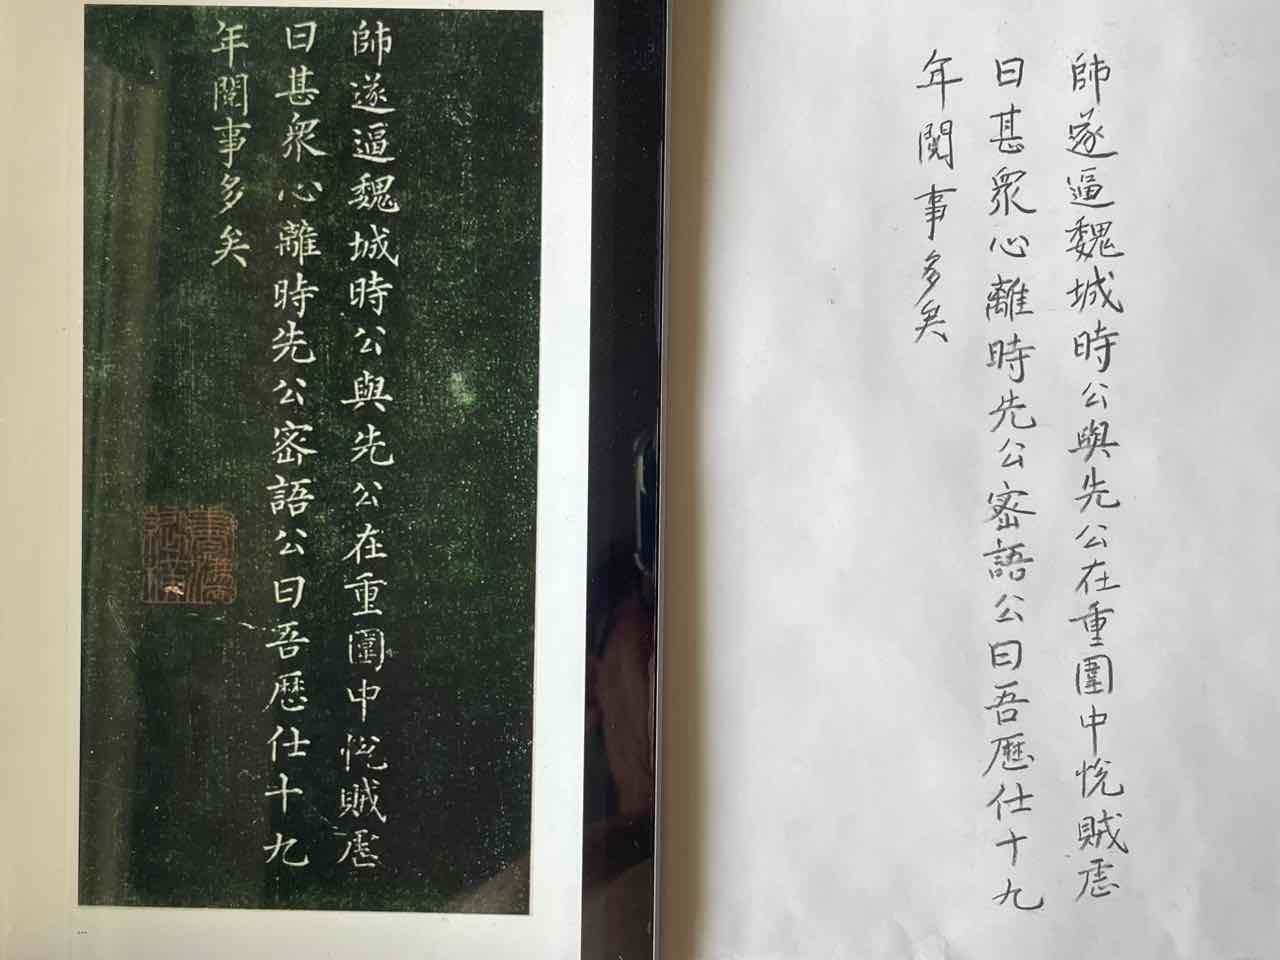 師遂逼魏城時公與先公在重圍中悅賊虐
曰甚衆心離時先公密語公曰吾歷仕十九
年閱事多矣
師遂逼魏城時公與先公在重圍中悅賊虐
曰甚衆心離時先公密語公曰吾歷仕十九
年閱事多矣